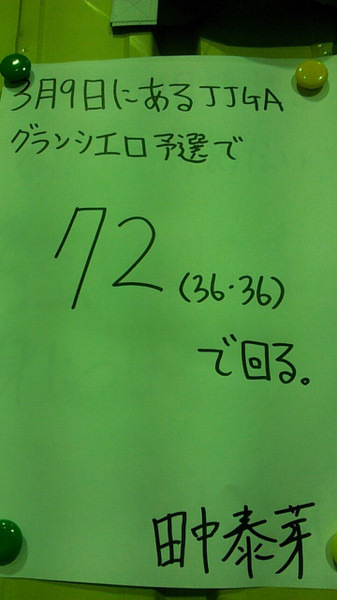 3月9日にあるJJGA
グランシエロ予選で
72(36・36)
で回る。
田中泰芽